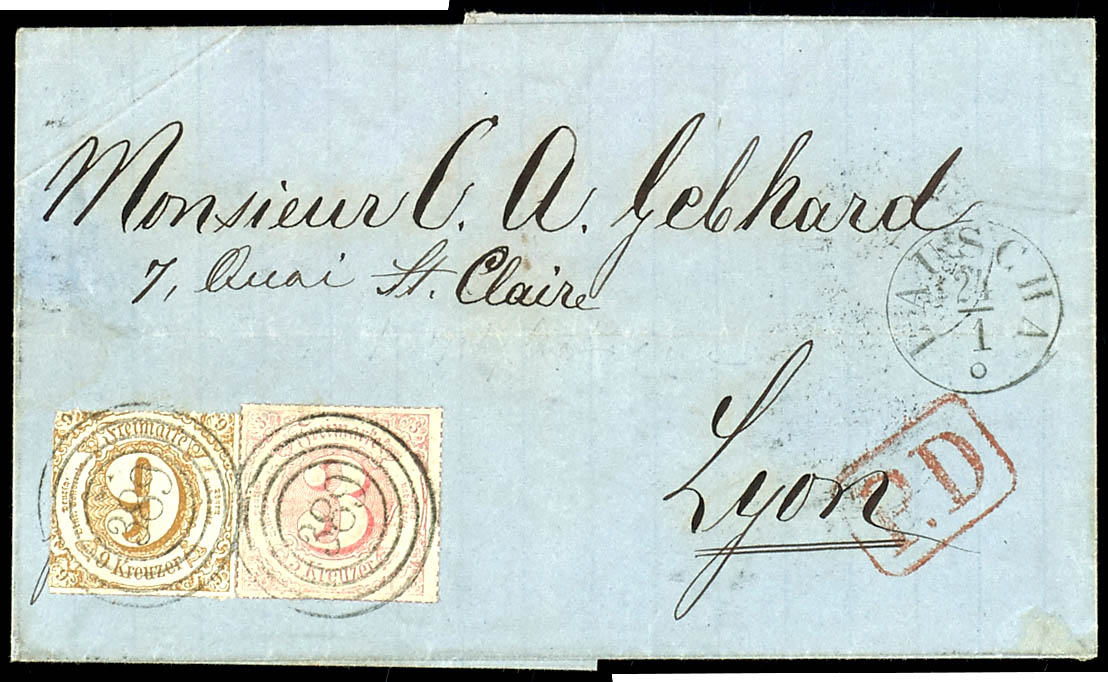 Monsieur C. A. Gebhard
7, Quai St. Claire
Lyon
LAUSCHA
21/1
P.D
Freimarke
9
9 Kreuzer
Freimarke
3
3 Kreuzer